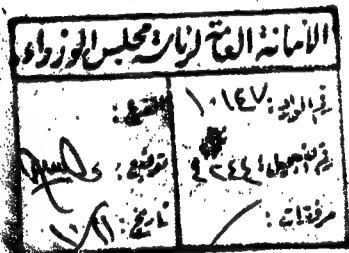 الأمانة العامة لرئاسة مجلس الوزراء
رقم الوارد: ١٠١٤٧
رقم التسجيل: ٤٢٤٤
مرفقات:
الفرع:
توقيع:
تاريخ: ١٠/٢١